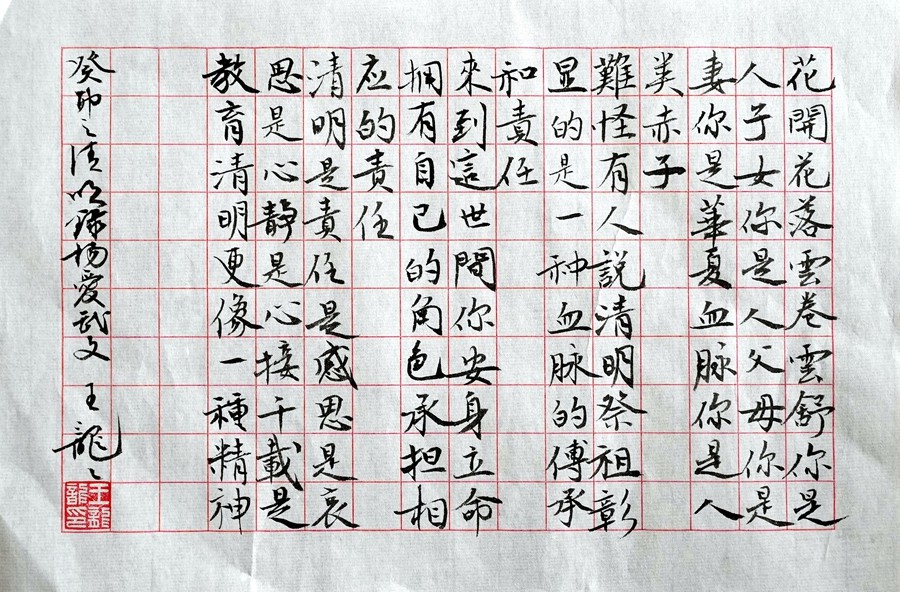 花開花落雲卷雲舒你是
人子女你是人父母你是
妻你是華夏血脈你是人
美赤子
難怪有人說清明祭祖彰
显的是一种血脈的傳承
和責任
來到這世間你安身立命
拥有自己的角色承担相
应的責任
清明是責任是感恩是哀
思是心靜是心接千載是
教育清明更像一種精神
癸卯之清明錄楊愛武文 王龍々
王龍龍印